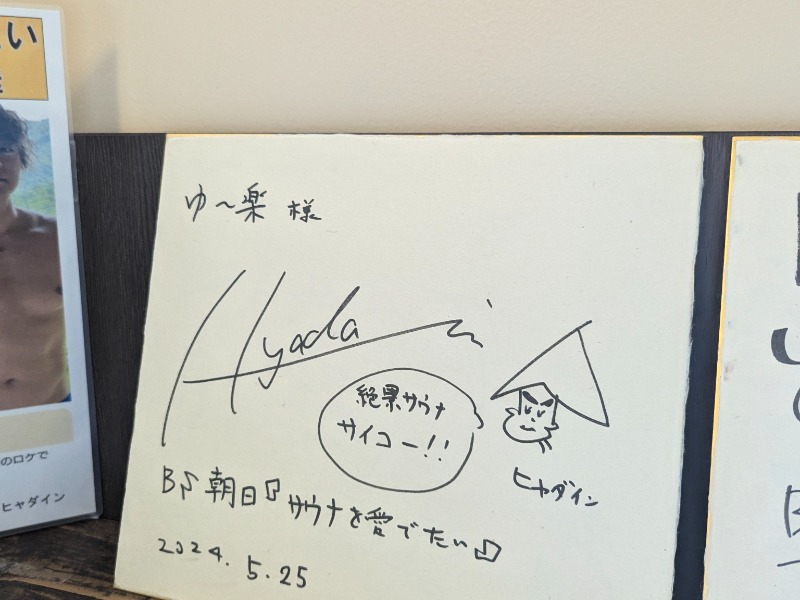 い
のロケで
ヒャダイン
ゆ〜楽 様
Hyadain
絶景サウナ
サイコー!!
ヒャダイン
BS朝日『サウナを愛でたい』
2024.5.25